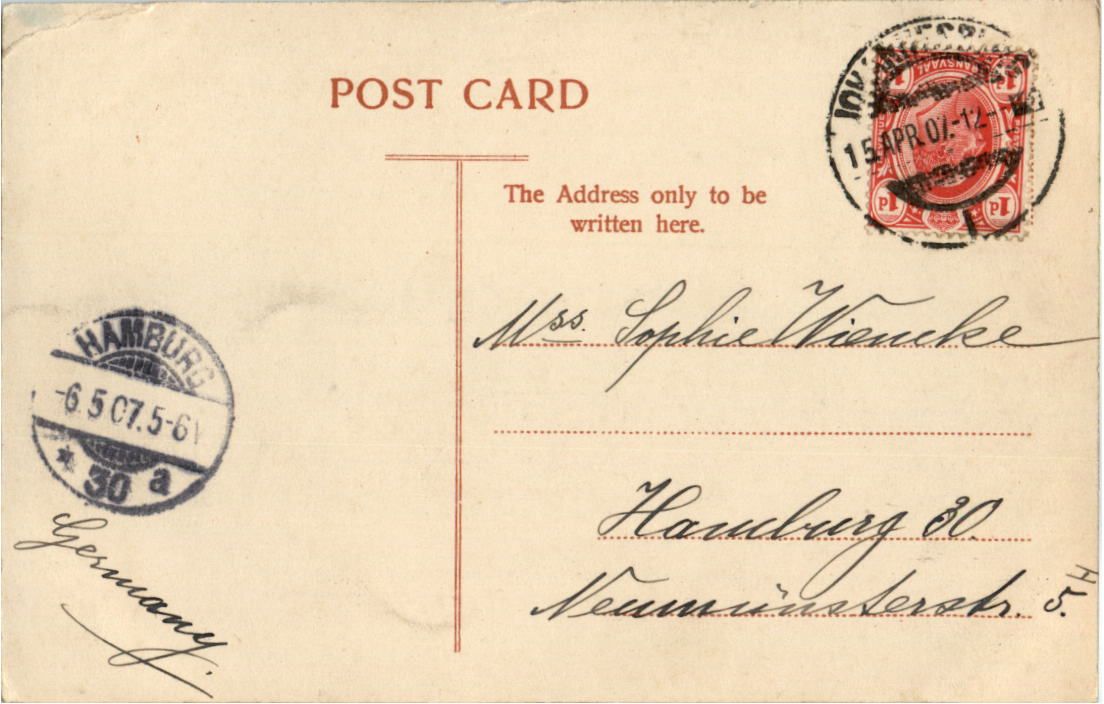 POST CARD
The Address only to be
written here.
JOHANNESBURG
15 APR. 07.-12
1
TRANSVAAL
1d 1d
1d 1d
Mss. Sophie Wiencke
Hamburg 30.
Neumünsterstr. 5. H
HAMBURG
-6.5.07.5-6V
* 30 a
Germany.